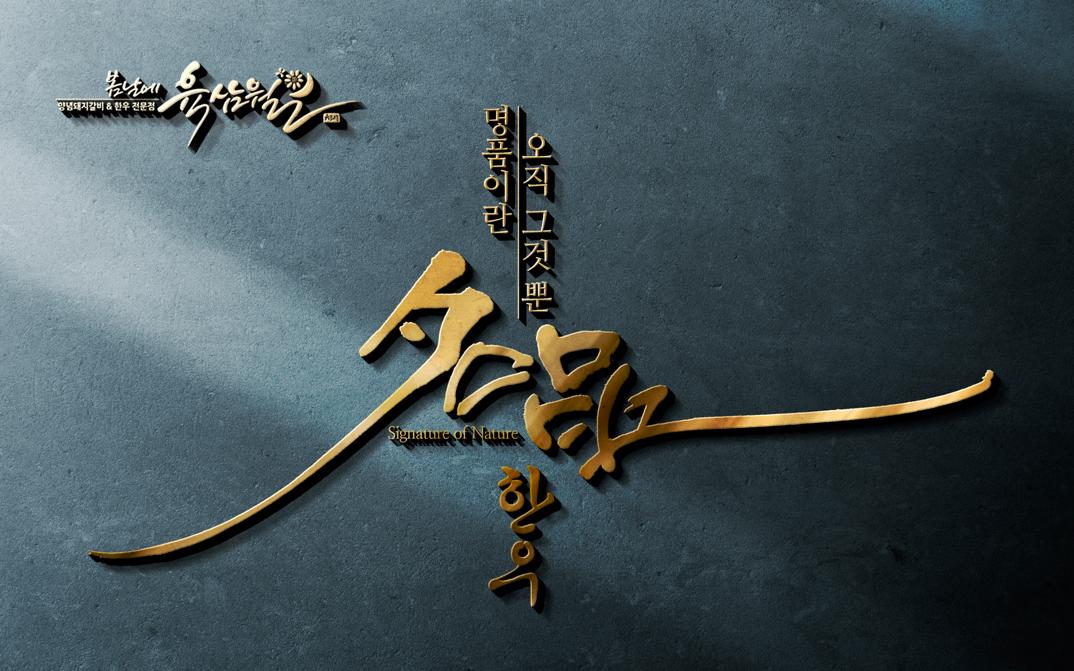 봄날에
양념돼지갈비 & 한우 전문점
명품이란
오직 그것 뿐
名品
Signature of Nature
한우